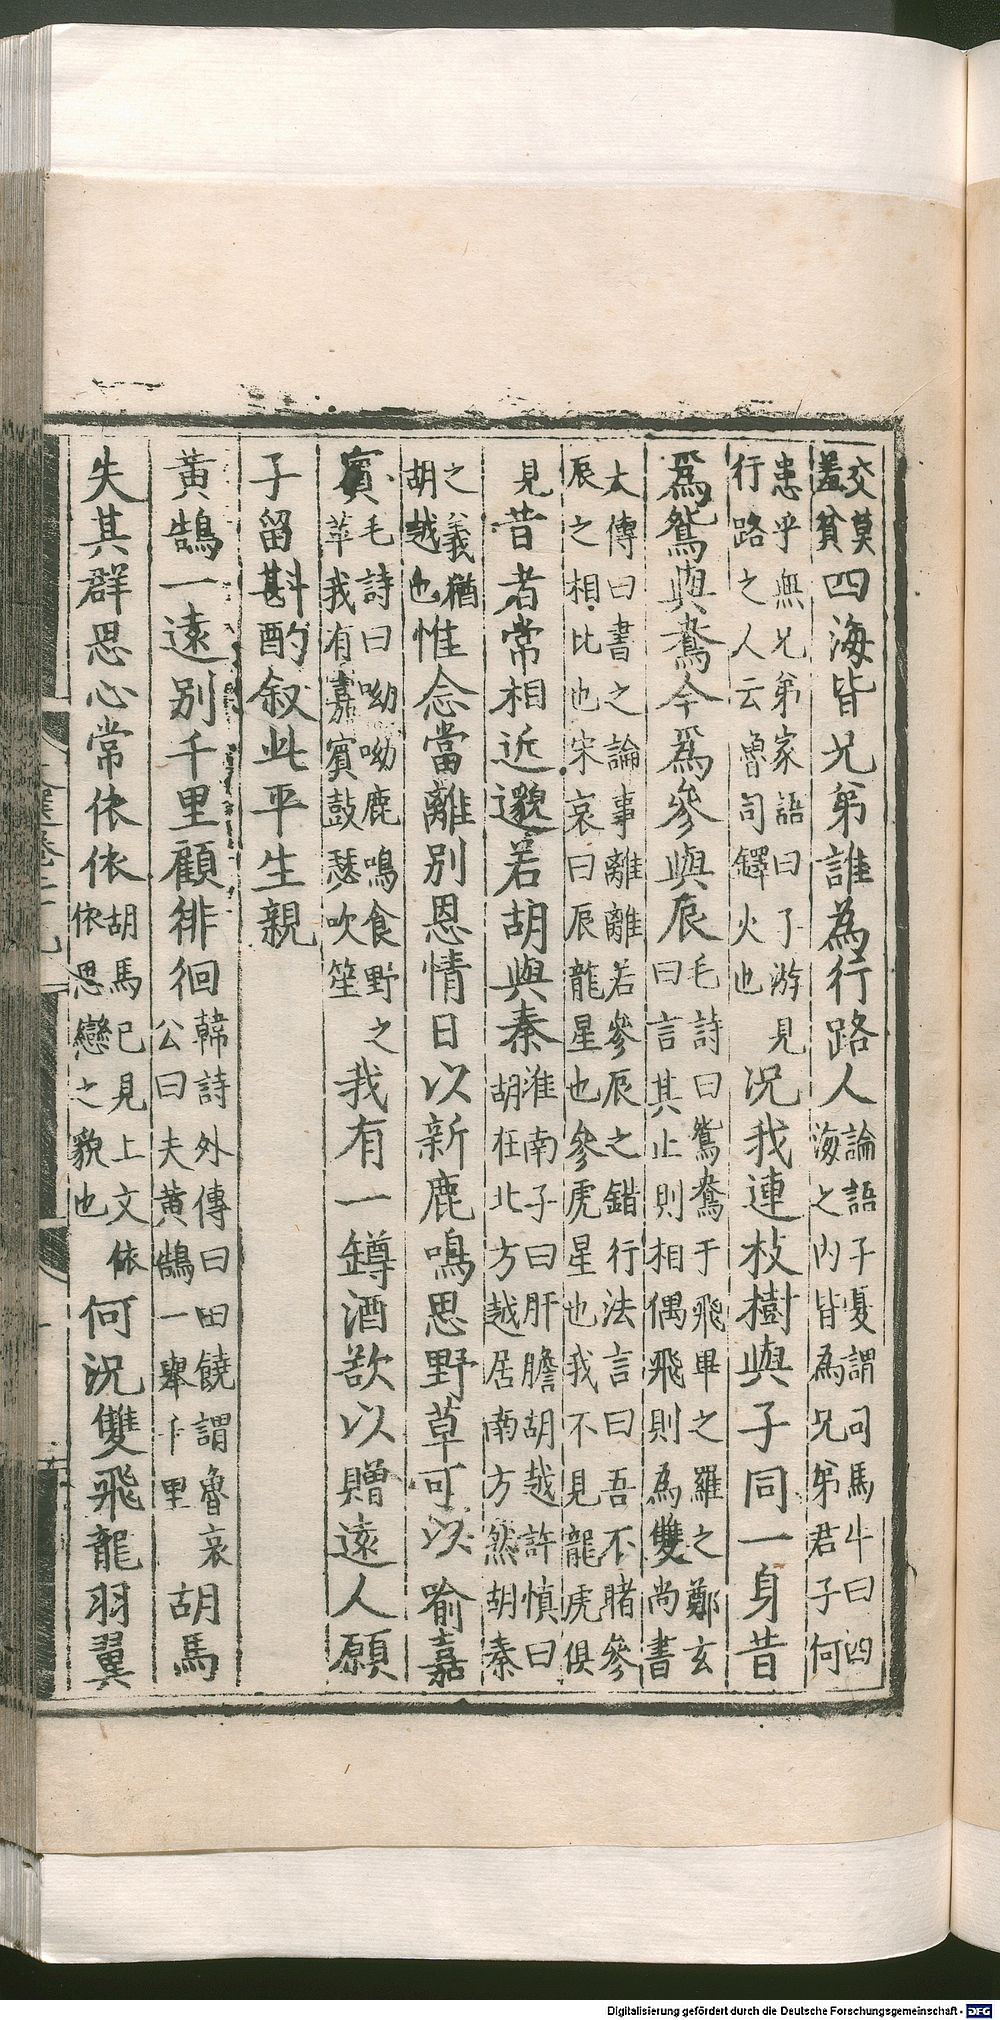 交莫羞貧四海皆兄弟誰為行路人論語子憂謂司馬牛曰四海之内皆為兄弟君子何
患乎無兄弟家語曰子游見行路之人云魯司鐸火也况我連枝樹與子同一身昔
爲鴛與鴦今爲參與辰毛詩曰鴛鴦于飛畢之羅之鄭玄曰言其止則相偶飛則為雙尚書
太傳曰書之論事離離若參辰之錯行法言曰吾不睹參辰之相比也宋哀曰辰龍星也參虎星也我不見龍虎俱
見昔者常相近邈若胡與秦淮南子曰肝膽胡越許慎曰胡在北方越居南方然胡秦
之義猶胡越也惟念當離別恩情日以新鹿鳴思野草可以喻嘉
賓毛詩曰呦呦鹿鳴食野之苹我有嘉賓鼓瑟吹笙我有一罇酒欲以贈遠人願
子留斟酌叙此平生親
黃鵠一遠别千里顧徘徊韓詩外傳曰田饒謂魯哀公曰夫黃鵠一舉千里胡馬
失其群思心常依依胡馬已見上文依依思戀之貌也何況雙飛龍羽翼
Digitalisierung gefördert durch die Deutsche Forschungsgemeinschaft - DFG